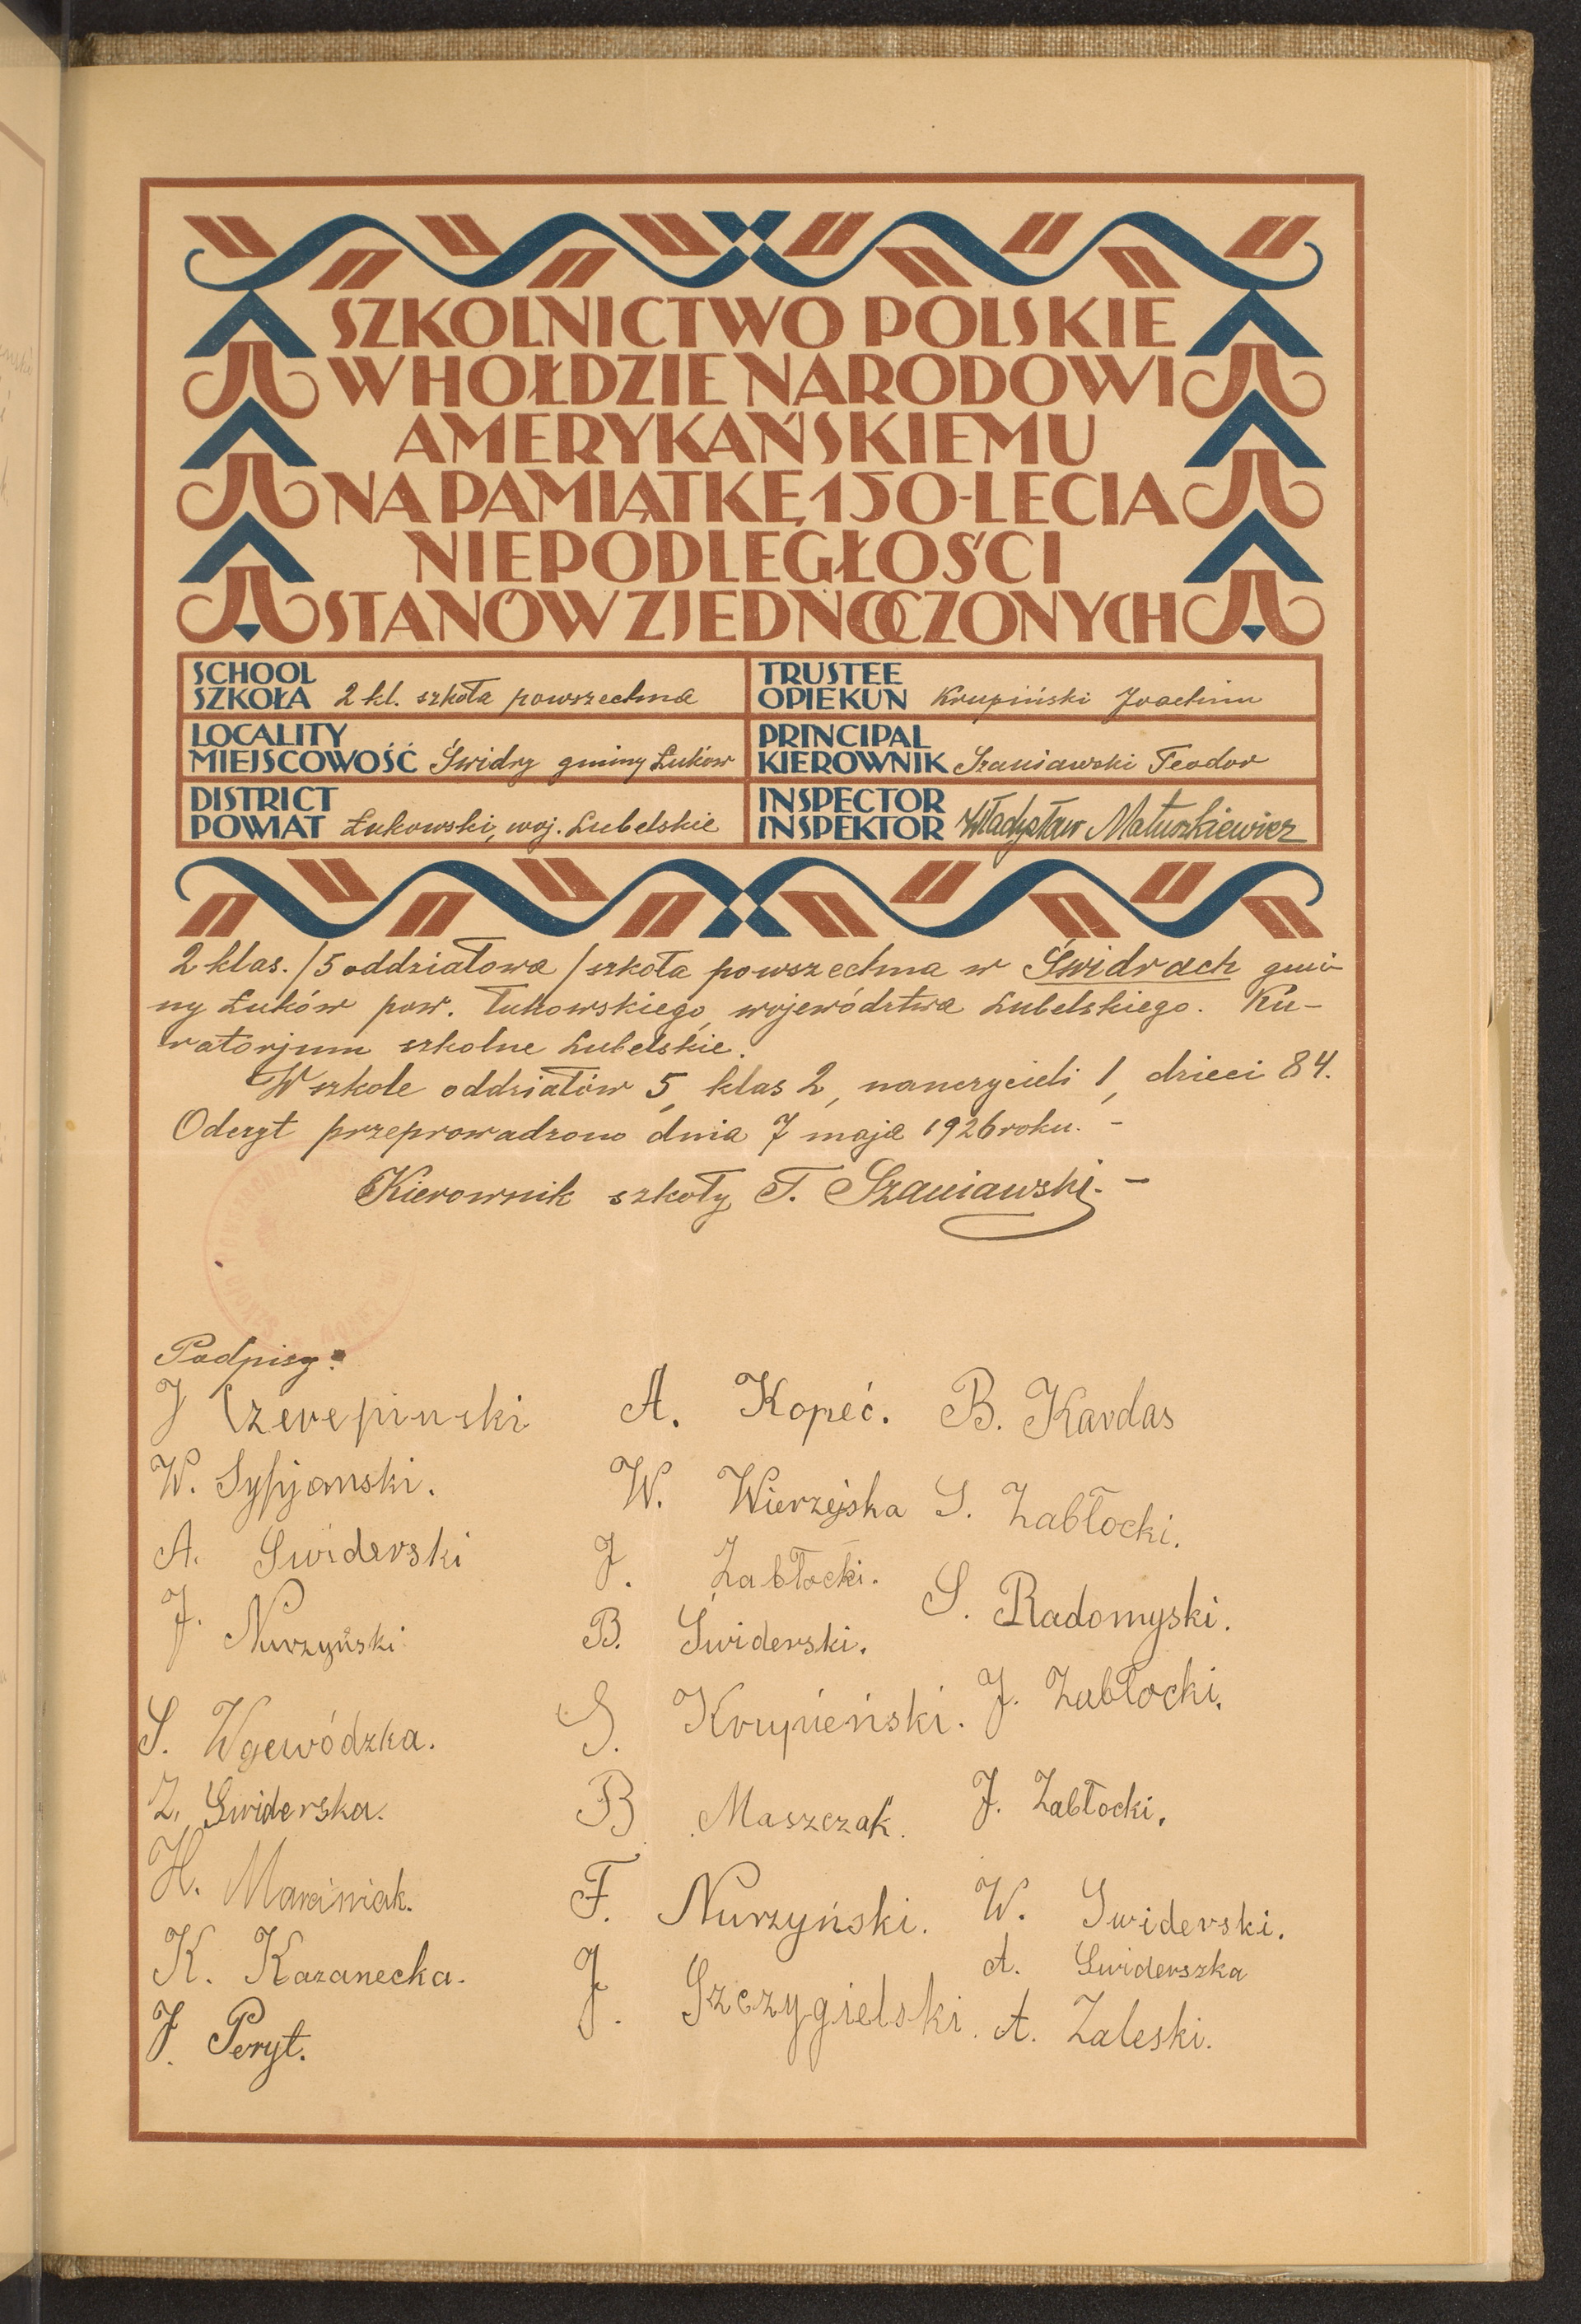 SZKOLNICTWO POLSKIE
W HOŁDZIE NARODOWI
AMERYKAŃSKIEMU
NA PAMIĄTKĘ 150-LECIA
NIEPODLEGŁOŚCI
STANÓW ZJEDNOCZONYCH
SCHOOL
SZKOŁA 2 kl. szkoła powszechna
TRUSTEE
OPIEKUN Krupiński Joachim
LOCALITY
MIEJSCOWOŚĆ Świdry gminy Łuków
PRINCIPAL
KIEROWNIK Szaniawski Teodor
DISTRICT
POWIAT Łukowski, woj. Lubelskie
INSPECTOR
INSPEKTOR Władysław Matuszkiewicz
2 klas. /5 oddziałowa/ szkoła powszechna w Świdrach gmi-
ny Łuków pow. Łukowskiego, województwa Lubelskiego. Ku-
ratorjum szkolne Lubelskie.
W szkole oddziałów 5, klas 2, nauczycieli 1, dzieci 84.
Odczyt przeprowadzono dnia 7 maja 1926 roku. -
Kierownik szkoły T. Szaniawski. -
Podpisy:
J Czerepinski A. Kopeć. B. Kardas
W. Sypjanski. W. Wierzejska S. Zabłocki.
A. Świderski J. Zabłocki. S. Radomyski.
J. Nurzyński B. Świderski. J. Zabłocki.
S. Wojewódzka. S. Krupieński. J. Zabłocki.
Z. Swiderska. B Maszczak. W. Swiderski.
H. Marciniak. F. Nurzyński. A. Swiderszka
K. Kazanecka. J. Szczygielski. A. Zaleski.
J. Peryt.